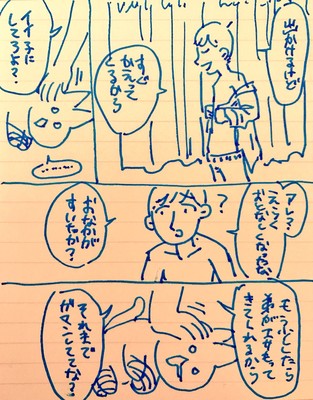 出かけるけど
すぐ
かえって
くるから
イイ子に
してろよ?
……
アレ?
えらく
?
おなかが
すいたか?
もう少ししたら
弟がエサもって
きてくれるから
それまで
ガマンしててな?